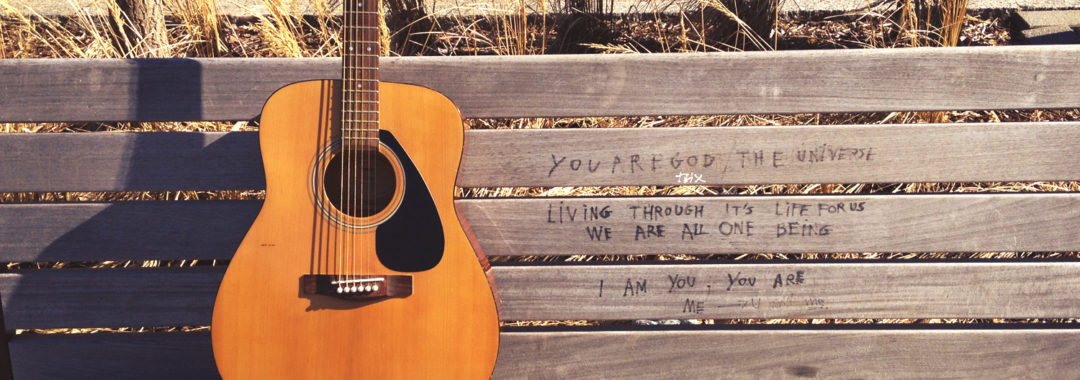 YOU ARE GOD, THE UNIVERSE
LIVING THROUGH IT'S LIFE FOR US
WE ARE ALL ONE BEING
I AM YOU, YOU ARE
ME